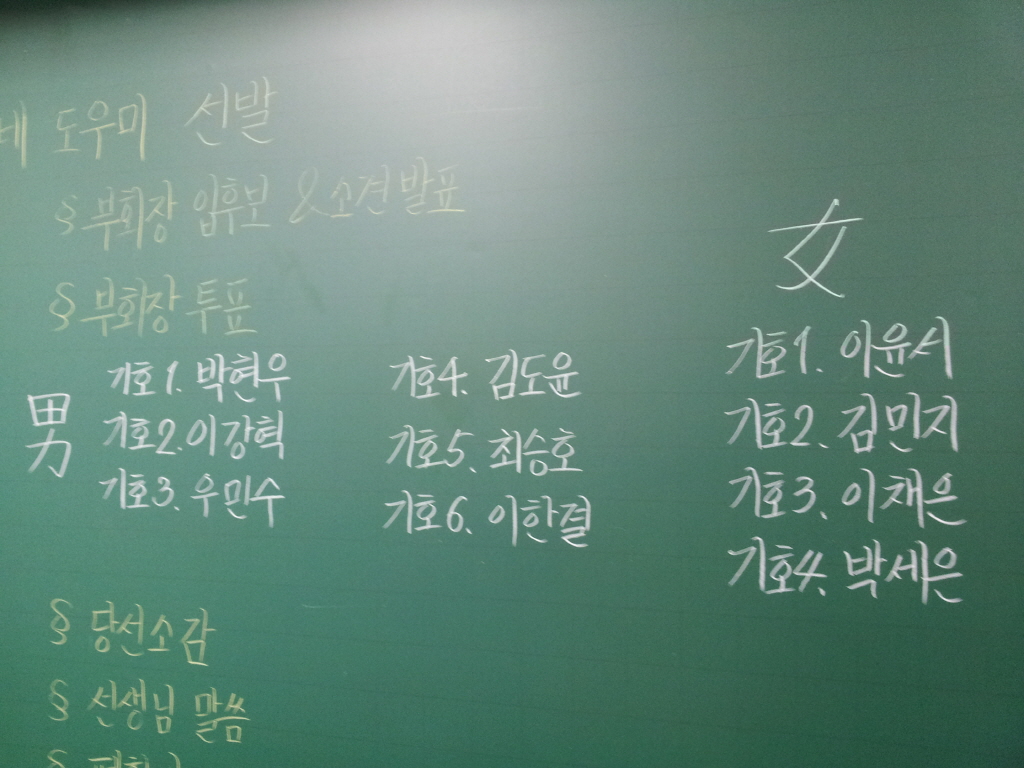 도우미 선발
§ 부회장 입후보 & 소견발표
§ 부회장 투표
男
기호1. 박현우
기호2. 이강혁
기호3. 우민수
기호4. 김도윤
기호5. 최승호
기호6. 이한결
女
기호1. 이윤서
기호2. 김민지
기호3. 이채은
기호4. 박세은
§ 당선소감
§ 선생님 말씀
§